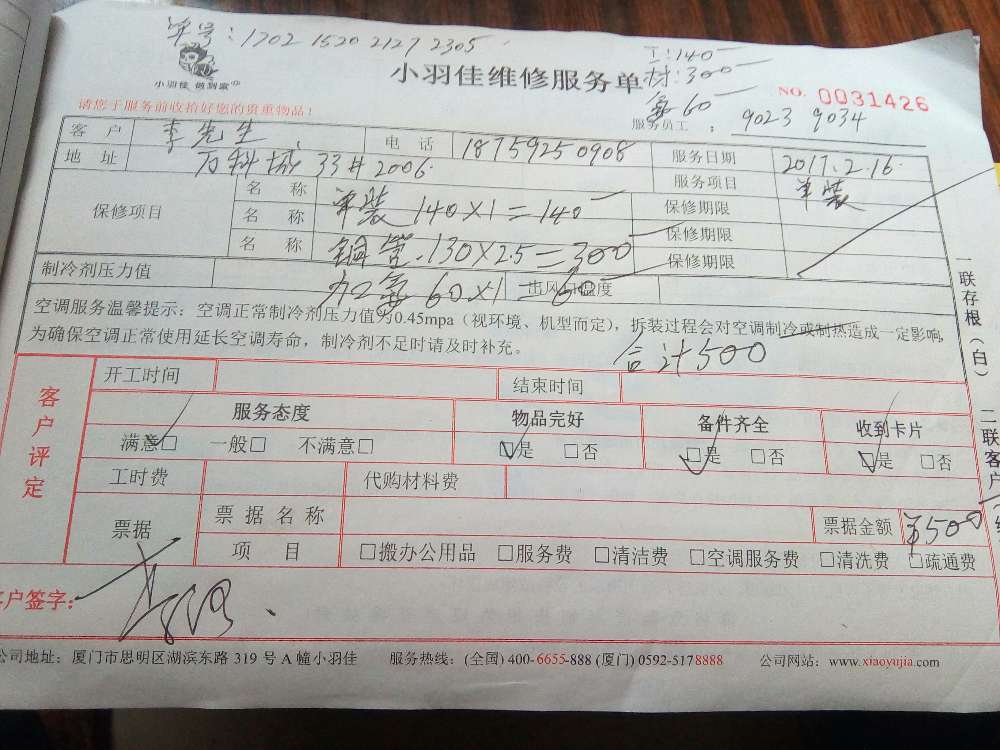 单号：1702 1520 2127 2305
小羽佳 做到家
小羽佳维修服务单
工：140
材：300
氟 60
NO. 0031426
请您于服务前收拾好您的贵重物品！
服务员工： 9023 9034
客 户 李先生 电 话 18759250908 服务日期 2017.2.16.
地 址 万科城33#2006. 服务项目 单装
保修项目
名 称 单装 140×1=140 保修期限
名 称 铜管.130×2.5=300 保修期限
名 称 加氟 60×1=60 保修期限
制冷剂压力值 出风口温度
空调服务温馨提示：空调正常制冷剂压力值为0.45mpa（视环境、机型而定），拆装过程会对空调制冷或制热造成一定影响，
为确保空调正常使用延长空调寿命，制冷剂不足时请及时补充。
合计500
客户评定
开工时间 结束时间
服务态度 物品完好 备件齐全 收到卡片
满意□ 一般□ 不满意□ □是 □否 □是 □否 □是 □否
工时费 代购材料费
票据
票 据 名 称 票据金额 ¥500
项 目 □搬办公用品 □服务费 □清洁费 □空调服务费 □清洗费 □疏通费
客户签字：
公司地址：厦门市思明区湖滨东路 319 号 A 幢小羽佳 服务热线：(全国) 400-6655-888 (厦门) 0592-5178888 公司网站：www.xiaoyujia.com
一联存根（白） 二联客户